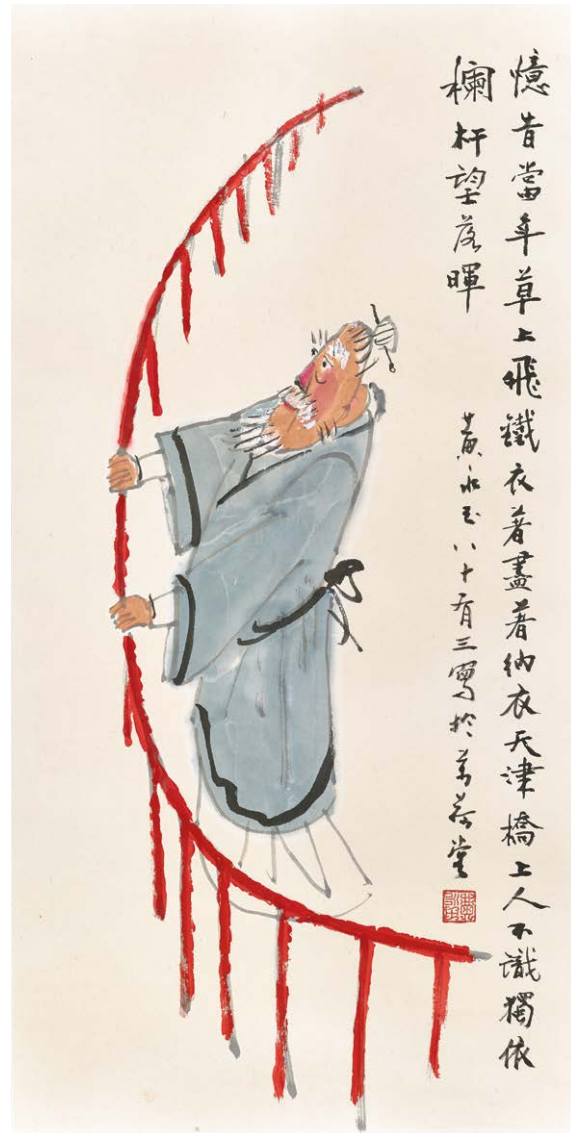 憶昔當年草上飛鐵衣著盡著衲衣天津橋上人不識獨依
欄杆望落暉
黃永玉八十有三寫於萬荷堂